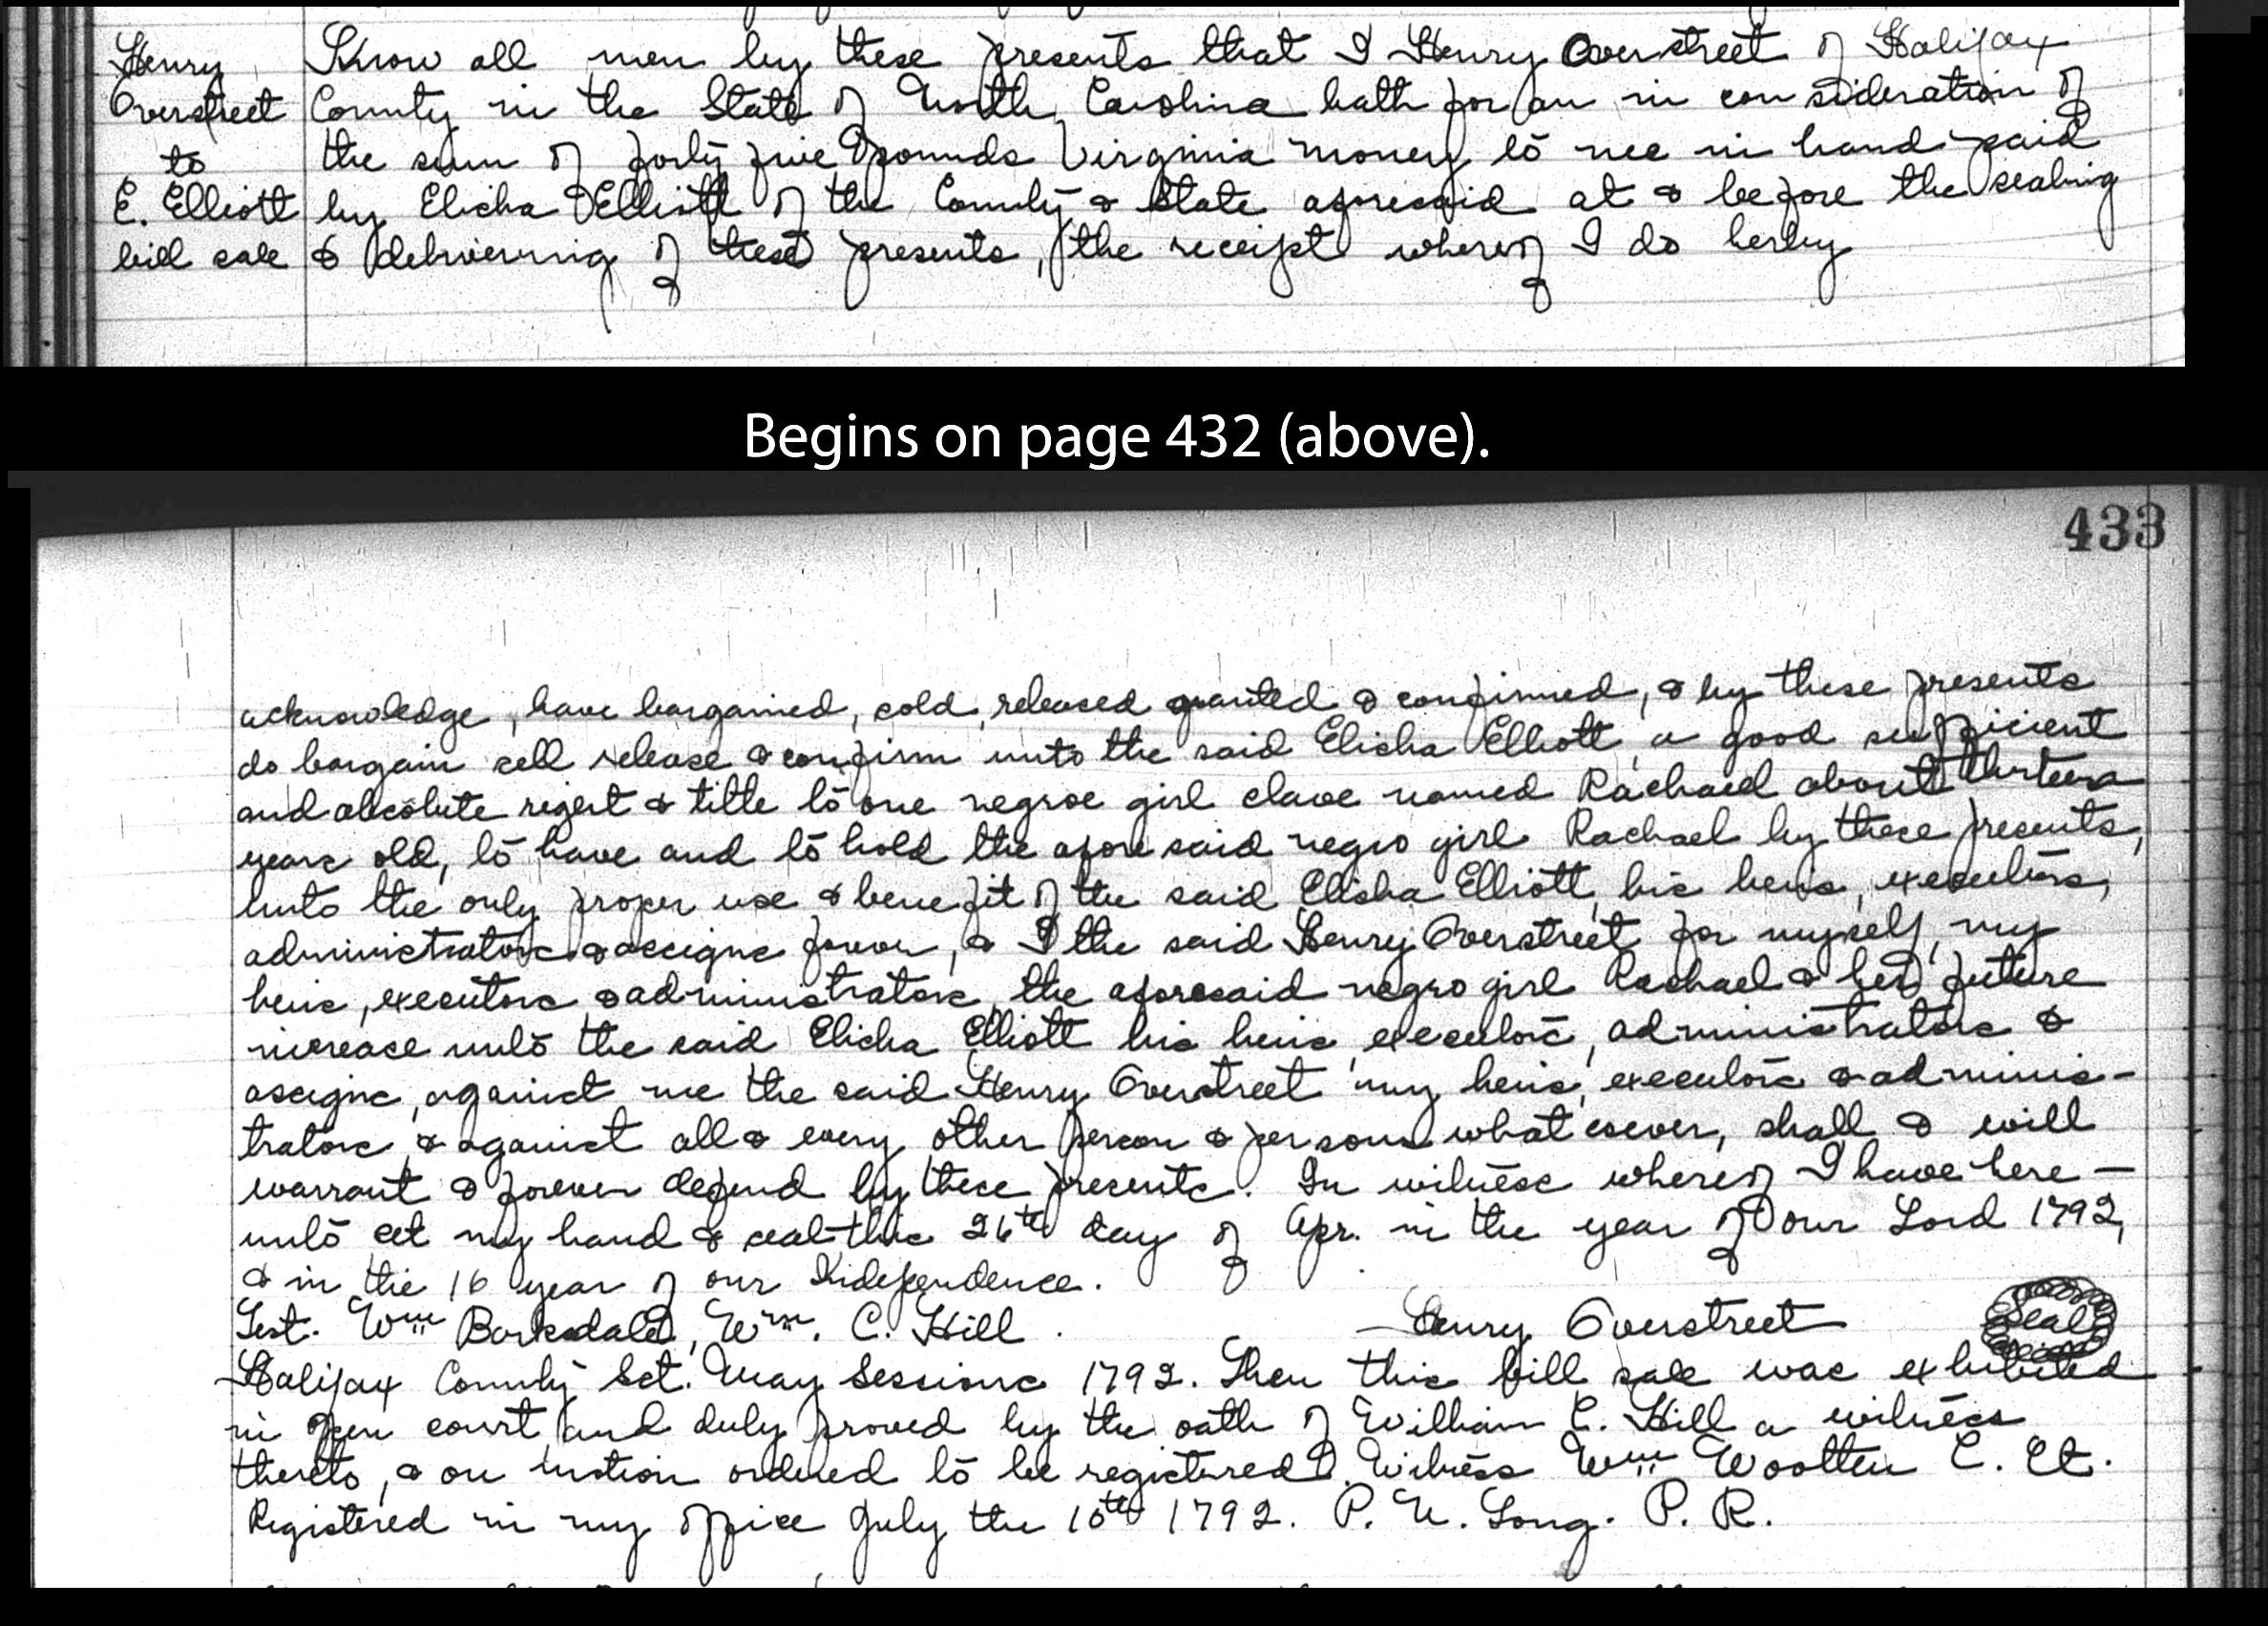 Henry
Overstreet
to
E. Elliott
bill sale
Know all men by these presents that I Henry Overstreet of Halifax
County in the State of North Carolina hath for an in consideration of
the sum of forty five pounds Virginia money to me in hand paid
by Elisha Elliott of the County & State aforesaid at & before the sealing
& delivering of these presents, the receipt whereof I do herby
Begins on page 432 (above).
433
acknowledge, have bargained, sold, released granted & confirmed, & by these presents
do bargain sell release & confirm unto the said Elisha Elliott a good sufficient
and absolute right & title to one negroe girl slave named Rachael about thirteen
years old, to have and to hold the afore said negro girl Rachael by these presents,
unto the only proper use & benefit of the said Elisha Elliott, his heirs, executors,
administrators & assigns forever, & I the said Henry Overstreet for myself, my
heirs, executors & administrators, the aforesaid negro girl Rachael & her future
increase unto the said Elisha Elliott his heirs, executors, administrators &
assigns, against me the said Henry Overstreet my heirs, executors & adminis-
trators & against all & every other person & persons what esever, shall & will
warrant & forever defend by these presents. In witness whereof I have here-
unto set my hand & seal this 26th day of Apr. in the year of our Lord 1792,
& in the 16 year of our Independence.
Test. Wm Barksdale, Wm. C. Hill. Henry Overstreet Seal
Halifax County Sct. May Sessions 1792. Then this bill sale was exhibited
in open court and duly proved by the oath of William C. Hill a witness
thereto, & on motion ordered to be registered. Witness Wm Wootten C. Ct.
Registered in my office July the 10th 1792. P. N. Long. P. R.